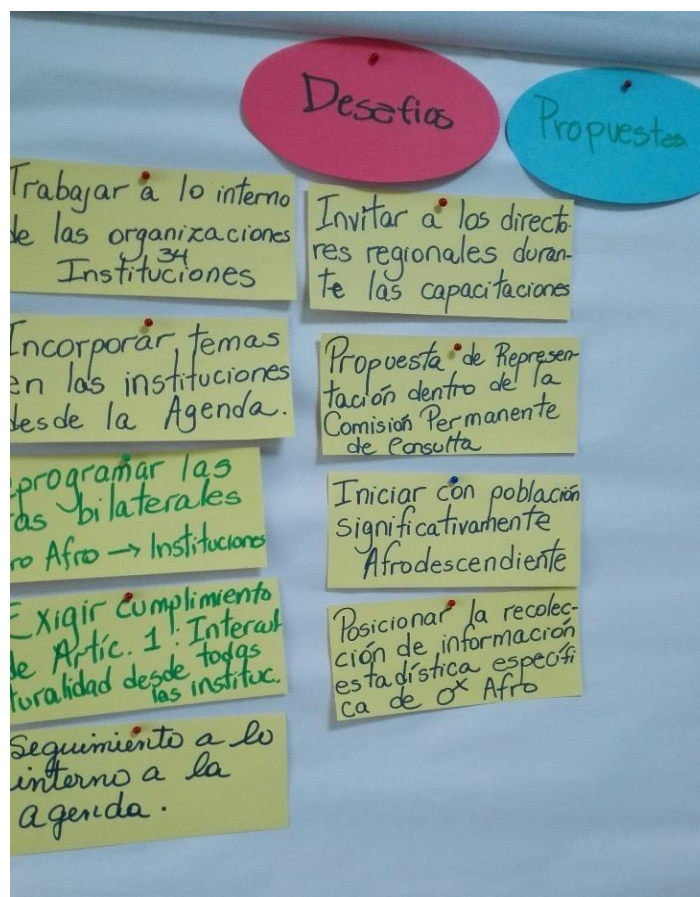 Desafios
Propuestas
Trabajar a lo interno
de las organizaciones
34
Instituciones
Incorporar temas
en las instituciones
desde la Agenda.
programar las
bilaterales
Afro → Instituciones
Exigir cumplimiento
de Artíc. 1: Intercul
turalidad desde todas
las instituc.
Seguimiento a lo
interno a la
agenda.
Invitar a los directo-
res regionales duran-
te las capacitaciones
Propuesta de Represen-
tación dentro de la
Comisión Permanente
de Consulta
Iniciar con población
significativamente
Afrodescendiente
Posicionar la recolec-
ción de información
estadística específi
ca de Afro